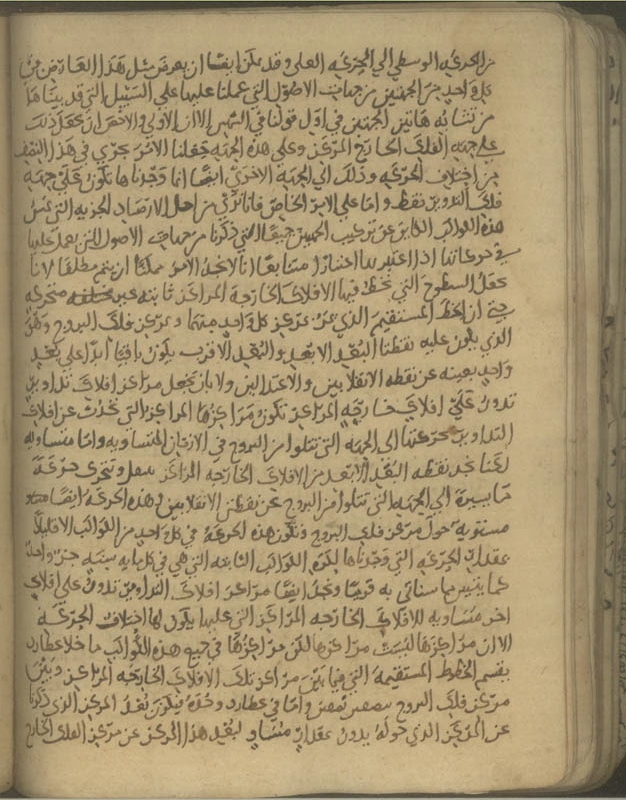 من الحركة الوسطى الى الحركة العلى وقد يمكن ايضا ان يعرض مثل هذا العارض من
كل واحد من الجهتين من جهات الاصول التى عملنا عليها على السبيل التى قد بينا هنا
من تشابه هاتين الجهتين فى اول قولنا فى الشمس الا ان الاولى والاخص ان نجعل ذلك
على جهة الفلك الخارج المركز وعلى هذه الجهة جعلنا الامر جرى فى هذا النحو
من اختلاف الحركة وذلك الى الجهة الاخرى ايضا انما وجدناها تكون على جهة
فلك التدوير فقط واما على الامر الخاص فانا نرى من اجل الارصاد الجزئية التى
هذه الكواكب الكائن عن تركيب الجهتين جميعا التى ذكرنا من جهات الاصول التى نعمل عليها
فى حركاتنا اذا اعتبرناها اعتبارا متتابعا انا لا نجد الامر ممكنا ان يتم مطلقا لانا
نجعل السطوح التى نخط فيها الافلاك الخارجة المراكز ثابتة غير متحركة
حتى ان الخط المستقيم الذى يمر بمركز كل واحد منهما وبمركز فلك البروج وهو
الذى يكون عليه نقطتا البعد الابعد والبعد الاقرب يكون باقيا ابدا على بعد
واحد بعينه عن نقطه الانقلابين والاعتدالين ولا بان نجعل مراكز افلاك تداوير
تدور على افلاك خارجه المراكز تكون مراكزها المراكز التى تحدث عن افلاك
التداوير حركتها الى الجهة التى تتلوا من البروج فى الازمان المتساويه وايا متساويه
لكنا نجد نقطه البعد الابعد من الافلاك الخارجه المراكز تنتقل وتتحرك حركة
ما يسيرة الى الجهة التى تتلوا من البروج عن نقطتى الانقلابين وهذه الحركة ايضا
مستويه حول مركز فلك البروج وتكون هذه الحركة فى كل واحد من الكواكب الا قليلا
بمقدار الحركة التى وجدناها لكرة الكواكب الثابته التى هى فى كل مايه سنة جزء واحد
كما يتبين مما سنأتى به قريبا ونجد ايضا مراكز افلاك التداوير تدور على افلاك
اخر متساويه للافلاك الخارجه المراكز التى عليها يكون لها اختلاف الحركة
الا ان مراكزها ليست مراكزها لكن مراكزها فى جميع هذه الكواكب ما خلا عطارد
يقسم الخطوط المستقيمة التى فيما بين مراكز تلك الافلاك الخارجه المراكز وبين
مركز فلك البروج بنصفين نصفين واما فى عطارد وحده فيكون بعد المركز الذى ذكرنا
عن المركز الذى حوله يدور بمقدار متساو لبعد هذا المركز عن مركز الفلك الخارج